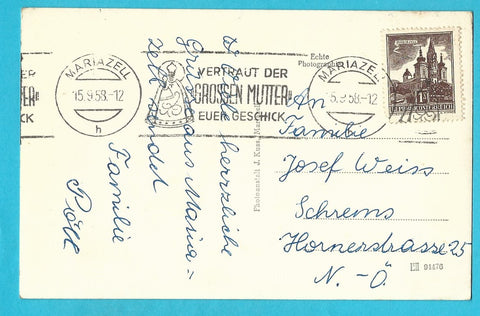 MARIAZELL
15.9.58.-12
h
VERTRAUT DER
GROSSEN MUTTER
EUER GESCHICK
MARIAZELL
15.9.58.-12
MUTTER
CK
Echte
Photographie
REPUBLIK ÖSTERREICH
herzliche
Grüsse aus Maria=
zell sendet
Familie
Photoanstalt J. Kuss, Mariazell
An
Familie
Josef Weiss
Schrems
Hornerstrasse 25
N.-Ö.
91476